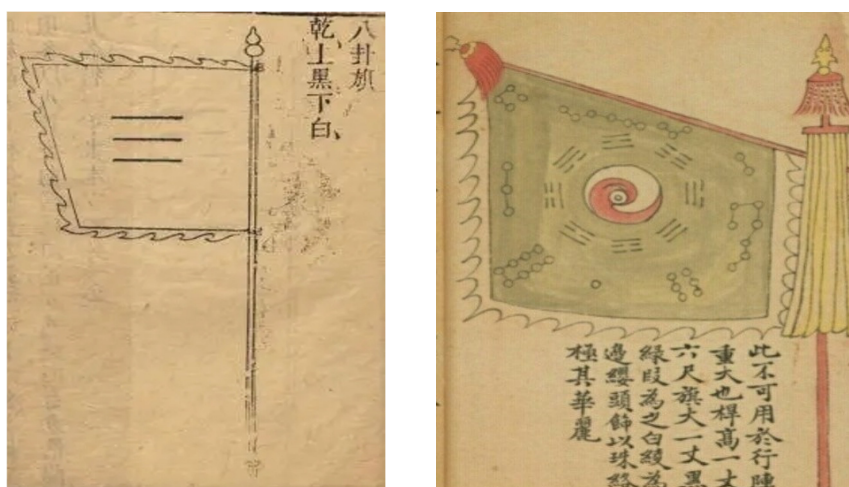 八卦旗
乾上黑下白
此不可用於行陣
重大也桿高一丈
六尺旗大一丈黑
緑段為之白綾為
邊纓頭飾以珠絡
極其華麗